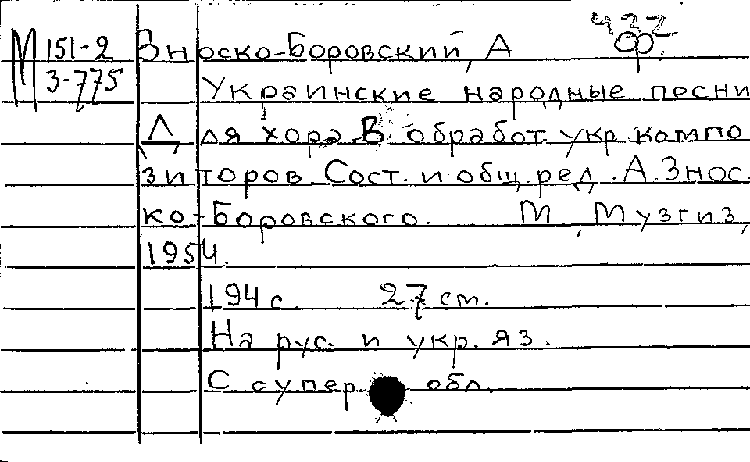 М 151-2 Зноско-Боровский, А
3-775
Украинские народные песни
Для хора. В обработ. укр. компо
зиторов. Сост. и общ. ред. А. Знос.
ко-Боровского. М., Музгиз,
1954.
194 с. 27 см.
На рус. и укр. яз.
С супер обл.